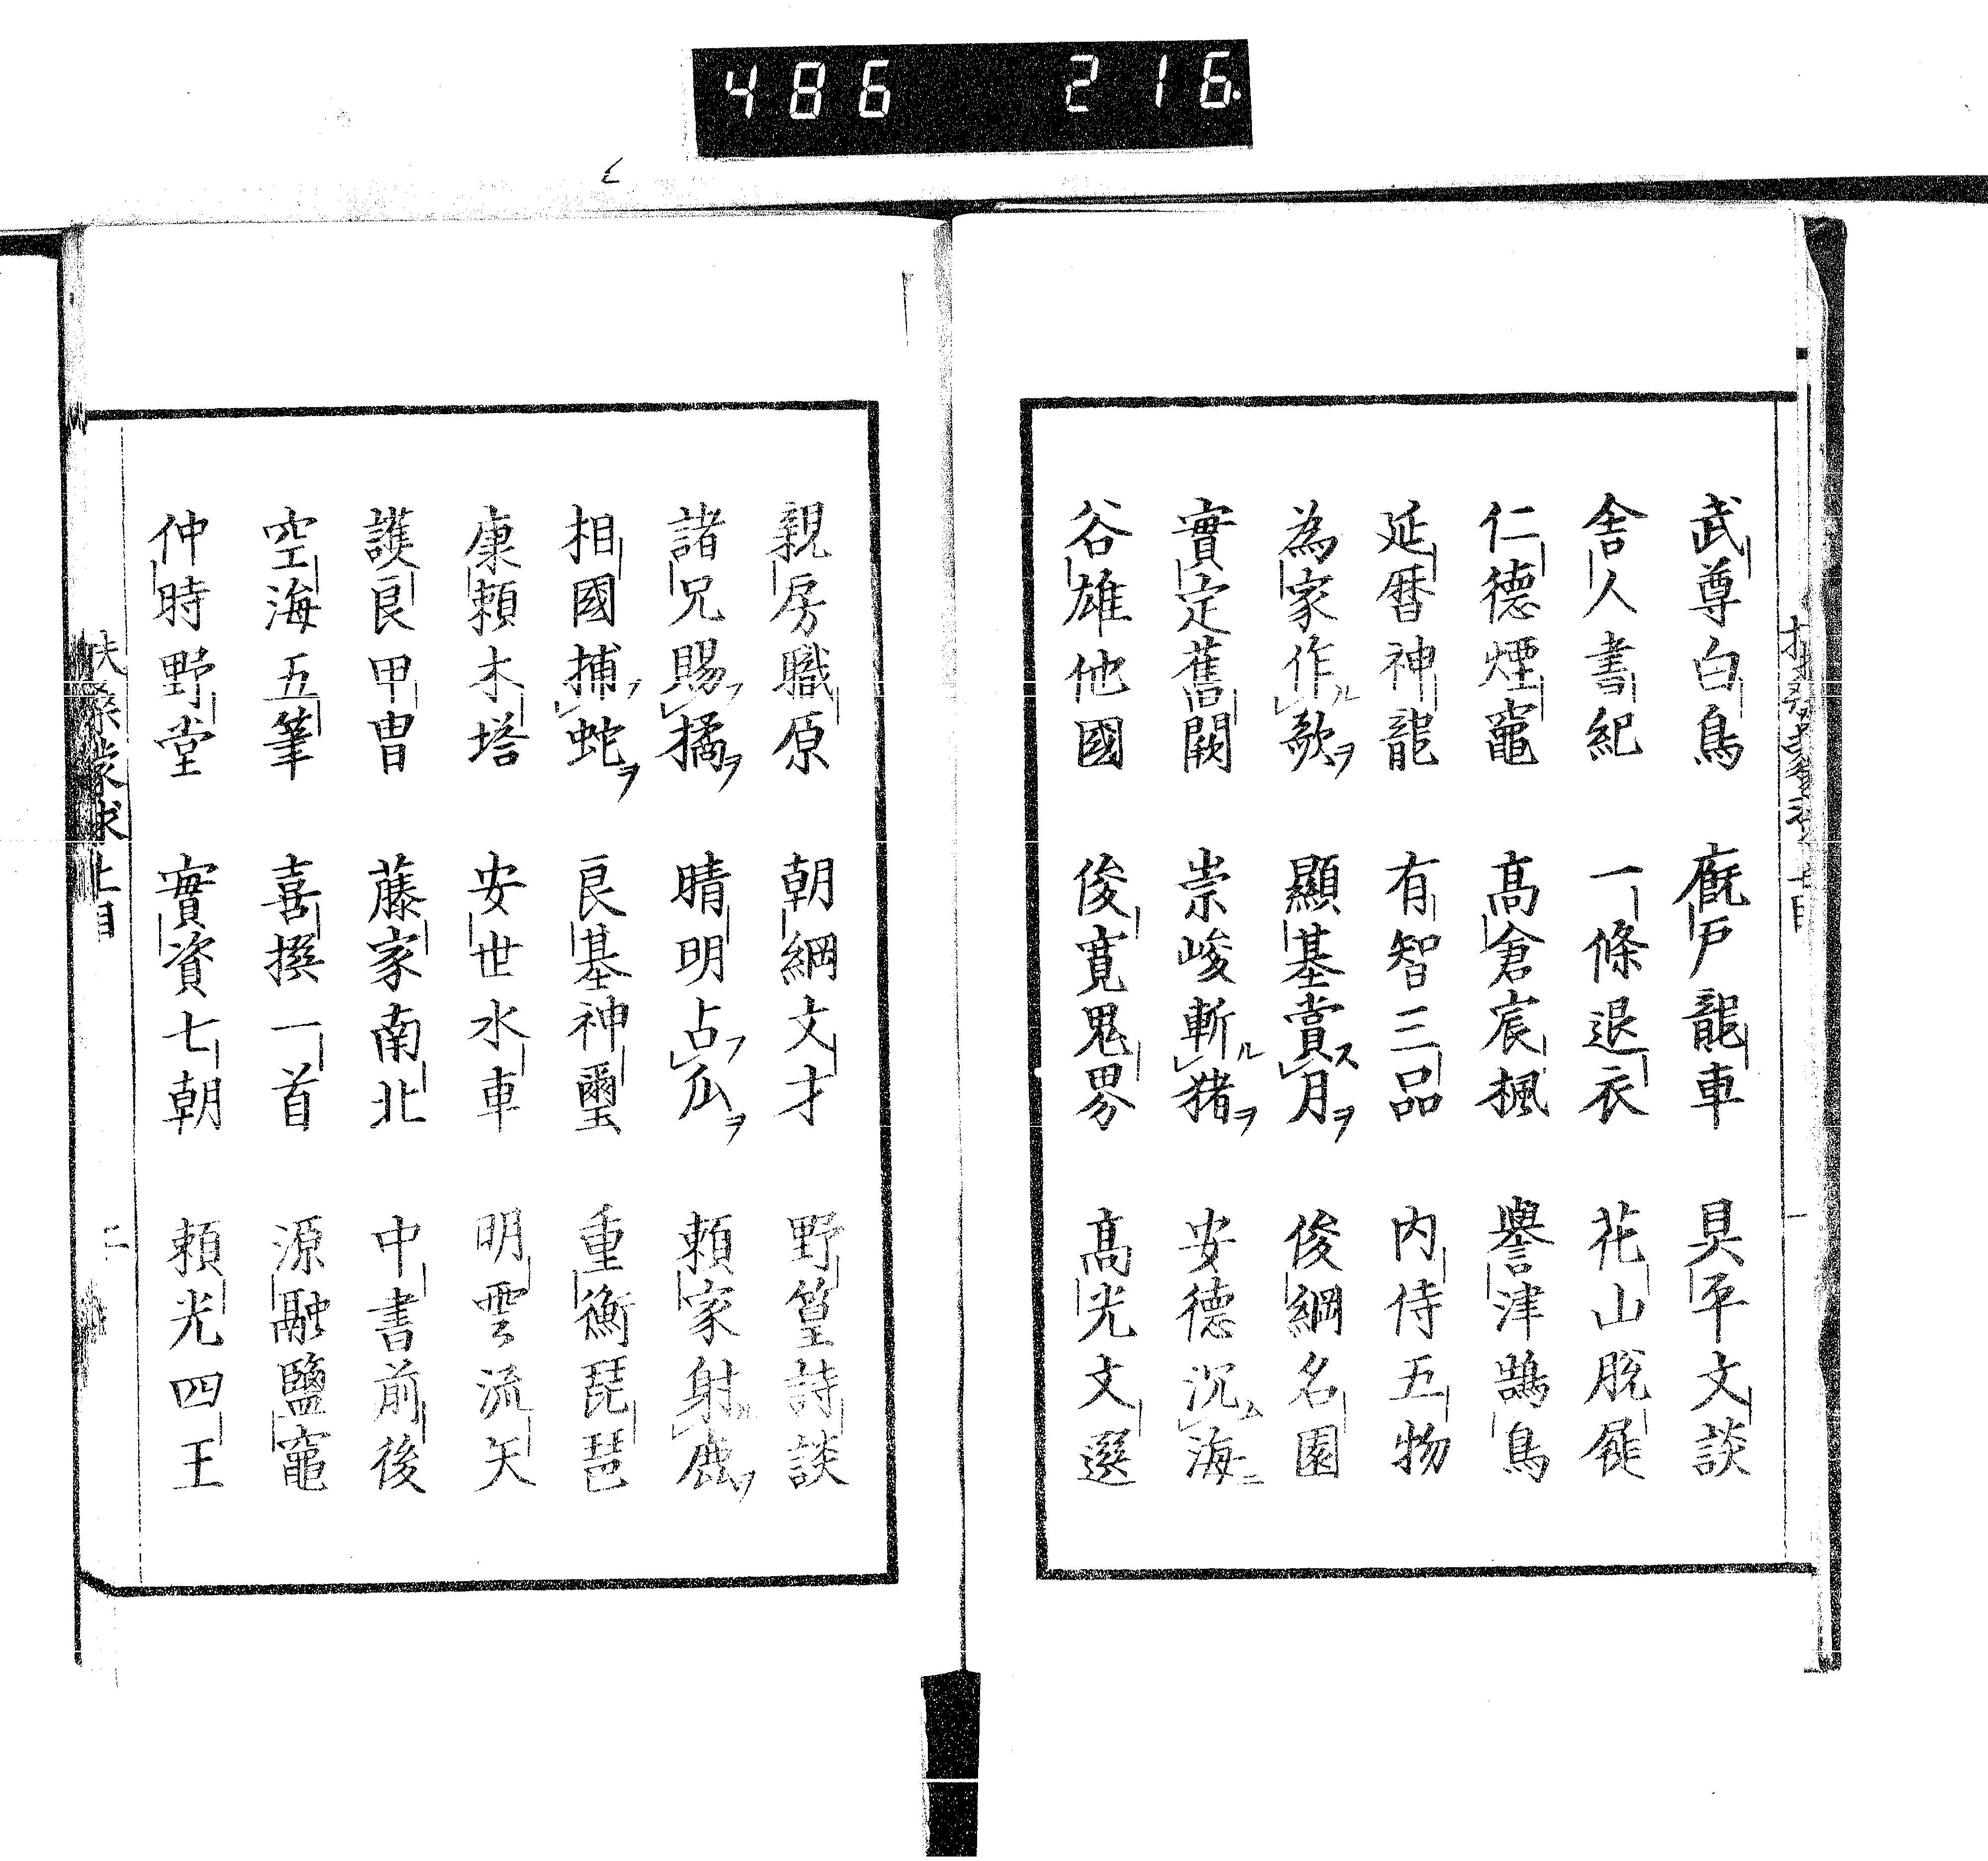 486 216.
武尊白鳥 廐戸龍車 具平文談
舎人書紀 一條退衣 花山脱屣
仁德煙竈 高倉宸楓 譽津鵠鳥
延暦神龍 有智三品 内侍五物
為家作ル歌ヲ 顯基賞ス月ヲ 俊綱名園
實定舊闕 崇峻斬ル猪ヲ 安德沉ム海ニ
谷雄他國 俊寛鬼界 高光文選
親房職原 朝綱文才 野篁詩談
諸兄賜フ橘ヲ 晴明占フ瓜ヲ 頼家射ル鹿ヲ
相國捕フ蛇ヲ 良基神璽 重衡琵琶
康頼木塔 安世水車 明雲流矢
護良甲冑 藤家南北 中書前後
空海五筆 喜撰一首 源融鹽竈
仲時野堂 實資七朝 頼光四王
扶桑蒙求上目 二